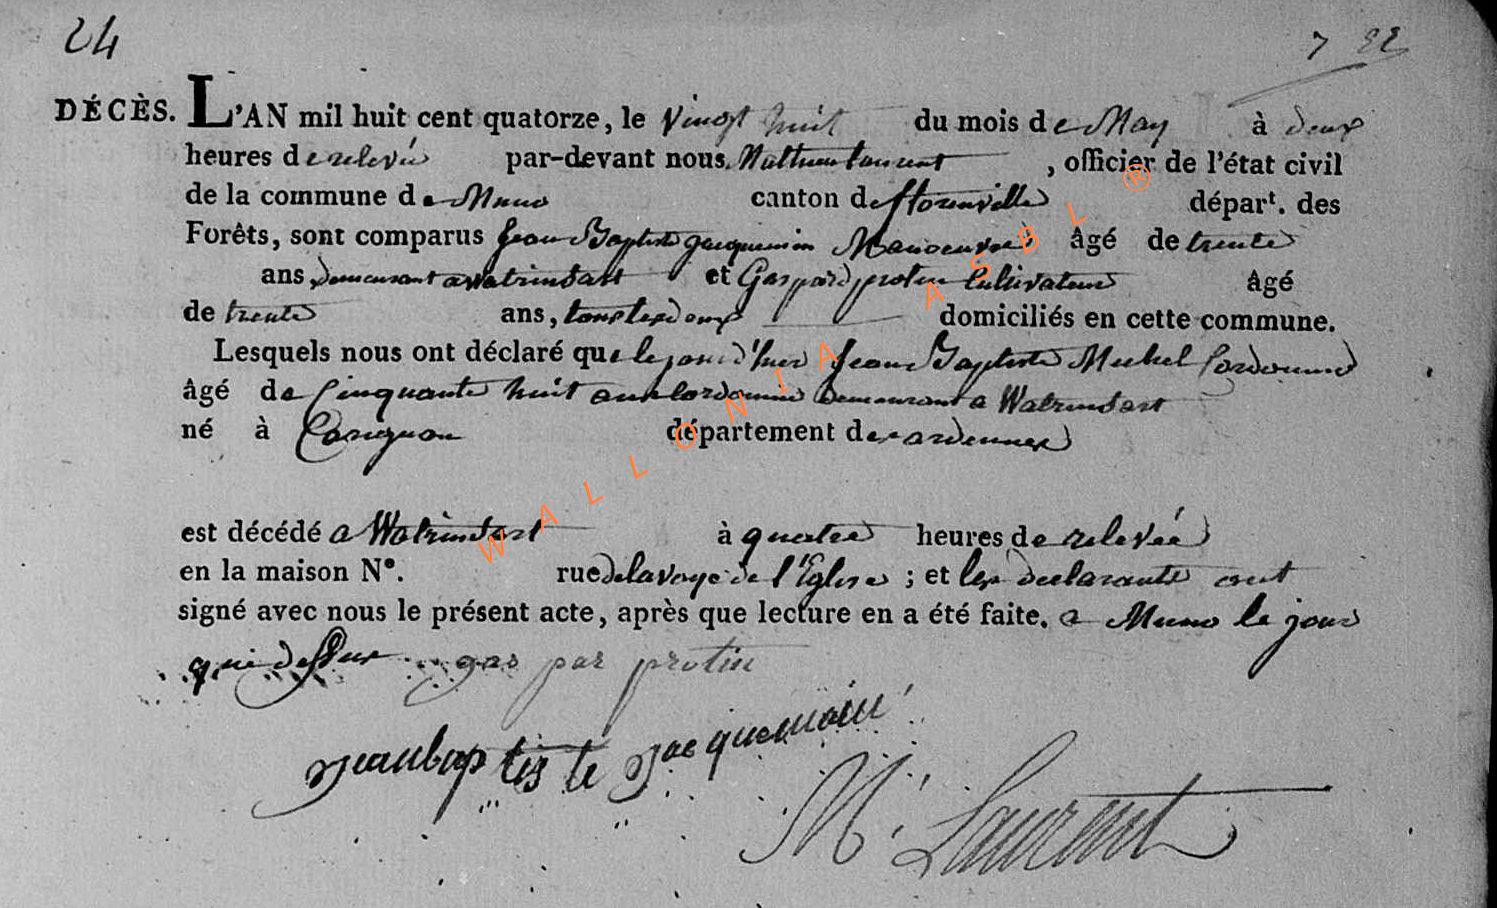 24
7 22
DÉCÈS. L'AN mil huit cent quatorze, le vingt huit du mois de May à deux
heures de relevée par-devant nous Mathieu Laurent, officier de l'état civil
de la commune de Muno canton de florenville départ. des
Forêts, sont comparus Jean Baptiste Jacquemin Manoeuvre âgé de trente
ans demeurant a Watrinsart et Gaspard protin Cultivateur âgé
de trente ans, tous les deux domiciliés en cette commune.
Lesquels nous ont déclaré que le jour d'hier Jean Baptiste Michel Cordonnier
âgé de Cinquante huit ans cordonnier demeurant a Watrinsart
né à Carignan département des ardennes
est décédé a Watrinsart à quatre heures de relevée
en la maison N°. rue de la voye de l'Eglise ; et les declarants ont
signé avec nous le présent acte, après que lecture en a été faite. a Muno le jour
que dessus gas par protin
Jeanbaptiste Jacquemin
M. Laurent
WALLONIA ASBL ®